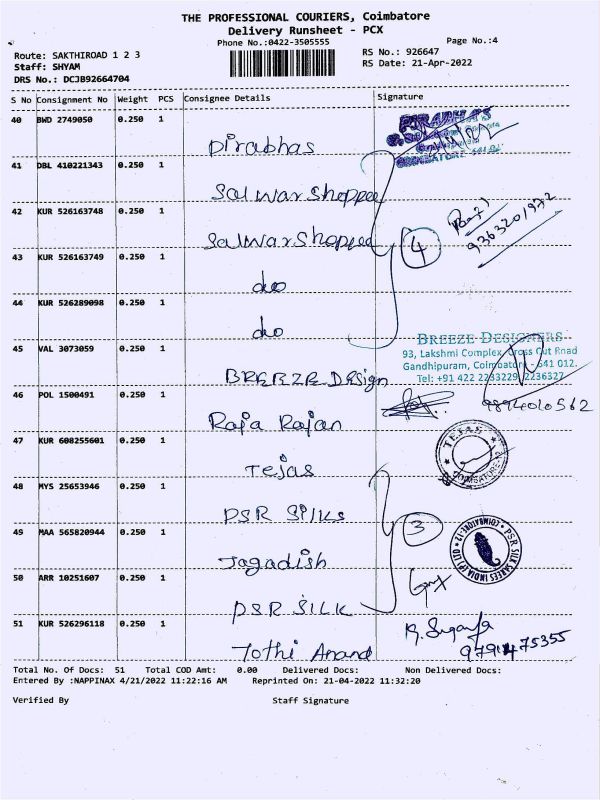 THE PROFESSIONAL COURIERS, Coimbatore
Delivery Runsheet - PCX
Phone No.:0422-3505555
Page No.:4
Route: SAKTHIROAD 1 2 3
RS No.: 926647
Staff: SHYAM
RS Date: 21-Apr-2022
DRS No.: DCJB92664704
S No Consignment No Weight PCS Consignee Details Signature
40 BWD 2749050 0.250 1
Pirabhas
PIRABHAS
COIMBATORE
41 DBL 410221343 0.250 1
Salwar Shoppee
42 KUR 526163748 0.250 1
Salwar Shoppee
4
9363201972
43 KUR 526163749 0.250 1
do
44 KUR 526289098 0.250 1
do
BREEZE DESIGNERS
93, Lakshmi Complex, Cross Cut Road
Gandhipuram, Coimbatore - 641 012.
Tel: +91 422 2233229, 2236327
45 VAL 3073059 0.250 1
BREEZE Design
46 POL 1500491 0.250 1
9894010562
Raja Rajan
47 KUR 608255601 0.250 1
Tejas
TEJAS
COIMBATORE-12
48 MYS 25653946 0.250 1
PSR Silks
49 MAA 565820944 0.250 1
3
Jagadish
PSR SILK SAREES INDIA (P) LTD
COIMBATORE-12
50 ARR 10251607 0.250 1
PSR SILK
51 KUR 526296118 0.250 1
9791475355
Jothi Anand
Total No. Of Docs: 51 Total COD Amt: 0.00 Delivered Docs: Non Delivered Docs:
Entered By :NAPPINAX 4/21/2022 11:22:16 AM Reprinted On: 21-04-2022 11:32:20
Verified By Staff Signature